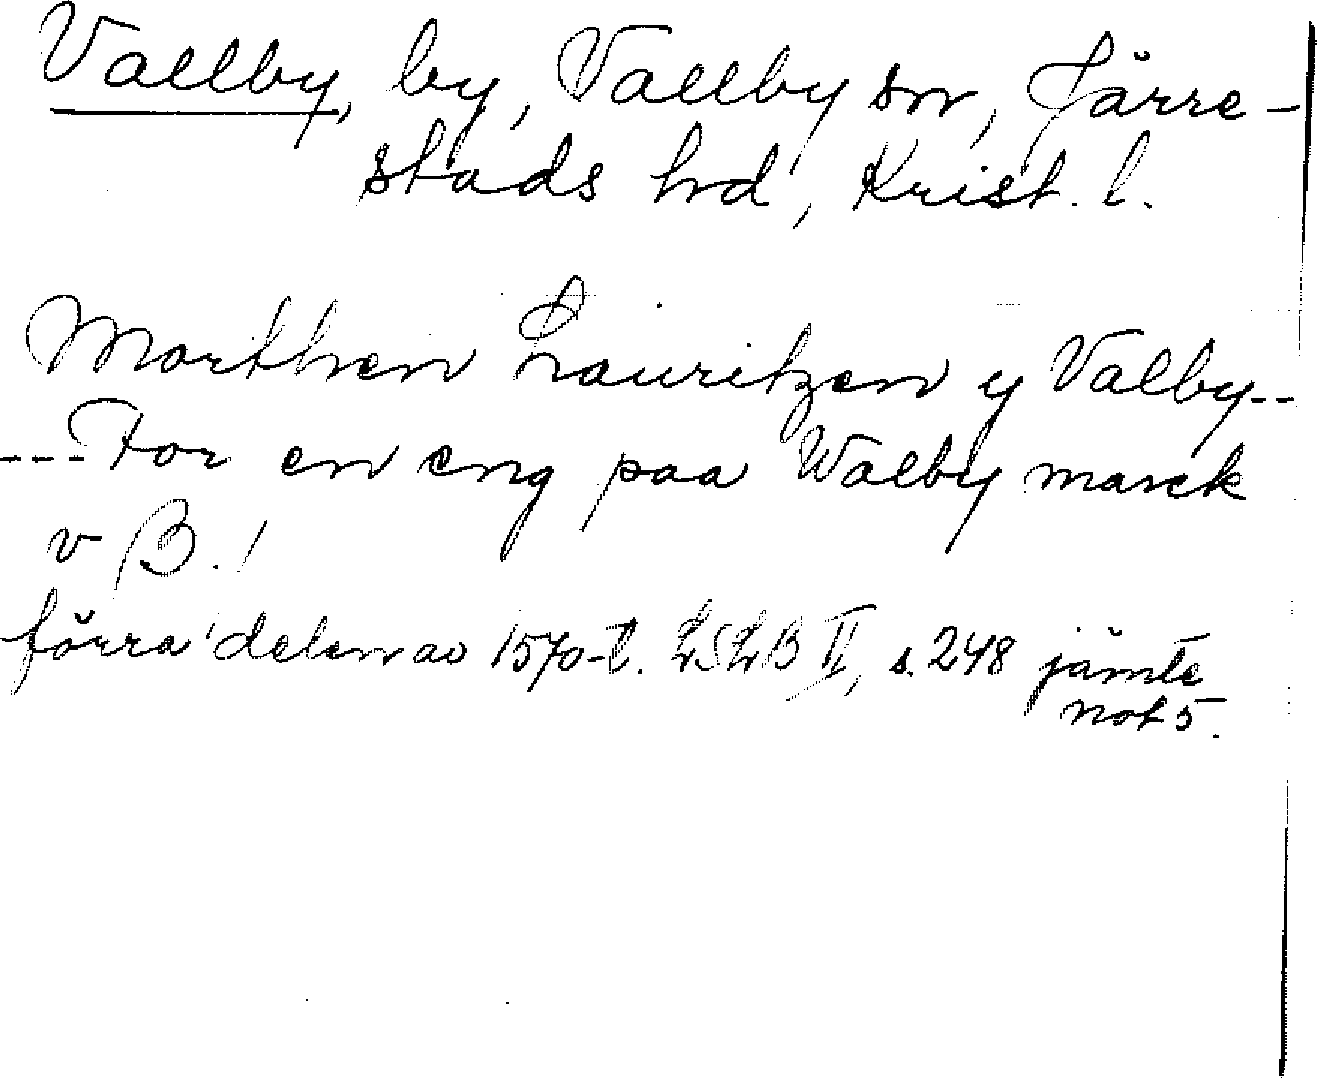 Vallby, by, Vallby sn, Järre-
stads hd, Krist. l.
Morthen Lauritzen y Valby--
---For en eng paa Walby marck
v B.
förra delen av 1570-t. LSLB II, s. 248 jämte
not 5.